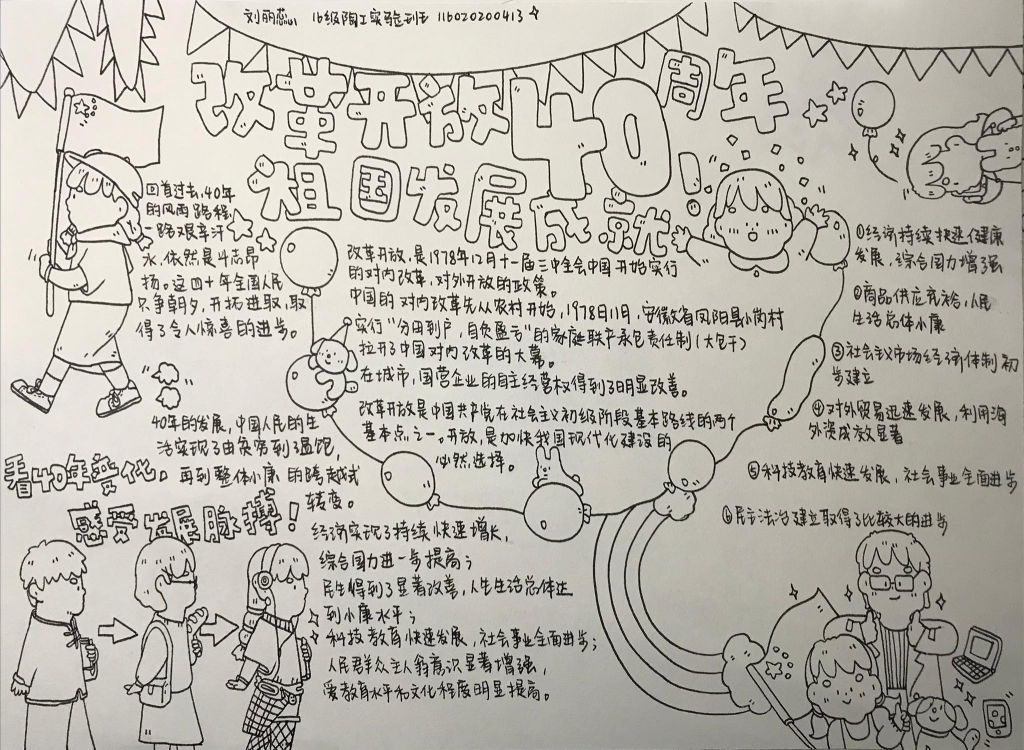 刘丽蕊 16级陶工实验班 116020200413
改革开放40周年
祖国发展成就!
回首过去,40年
的风雨路程,
一路艰辛汗
水,依然是斗志昂
扬。这四十年全国人民
只争朝夕,开拓进取,取
得了令人惊喜的进步。
改革开放,是1978年12月十一届三中全会中国开始实行
的对内改革,对外开放的政策。
中国的对内改革先从农村开始,1978月11月,安徽省凤阳县小岗村
实行“分田到户,自负盈亏”的家庭联产承包责任制(大包干)
拉开了中国对内改革的大幕。
在城市,国营企业的自主经营权得到了明显改善。
改革开放是中国共产党在社会主义初级阶段基本路线的两个
基本点之一。开放,是加快我国现代化建设的
必然选择。
①经济持续快速健康
发展,综合国力增强
②商品供应充裕,人民
生活总体小康
③社会主义市场经济体制初
步建立
④对外贸易迅速发展,利用海
外资成效显著
⑤科技教育快速发展,社会事业全面进步
⑥民主法治建立取得了比较大的进步
40年的发展,中国人民的生
活实现了由贫穷到温饱,
再到整体小康的跨越式
转变。
看40年变化。
感受发展脉搏!
经济实现了持续快速增长,
综合国力进一步提高;
民生得到了显著改善,人生生活总体达
到小康水平;
科技教育快速发展,社会事业全面进步;
人民群众主人翁意识显著增强,
受教育水平和文化程度明显提高。